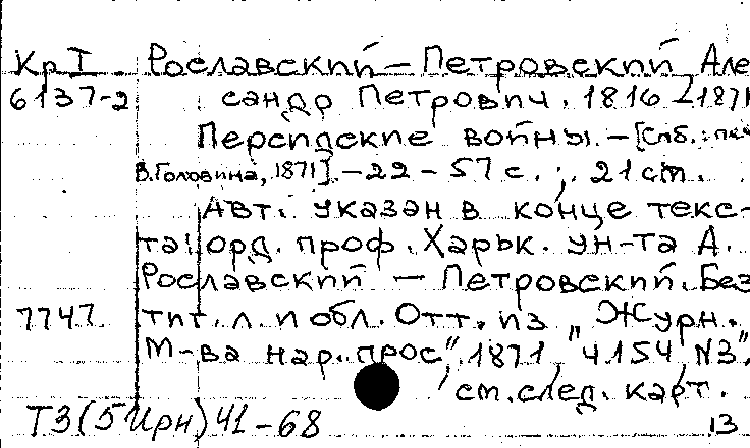 Кр I Рославский-Петровский Але
6137-2 сандр Петрович. 1816-1871
Персидские войны. - [Спб.: тип.
В.Головина, 1871]. - 22-57 с.; 21 см.
Авт. указан в конце текс-
та: орд. проф. Харьк. ун-та А.
Рославский - Петровский. Без
7747 тит. л. и обл. Отт. из „Журн.
М-ва нар. прос", 1871, ч.154, N3".
см. след. карт.
Т3(5Ирн)41-68 13